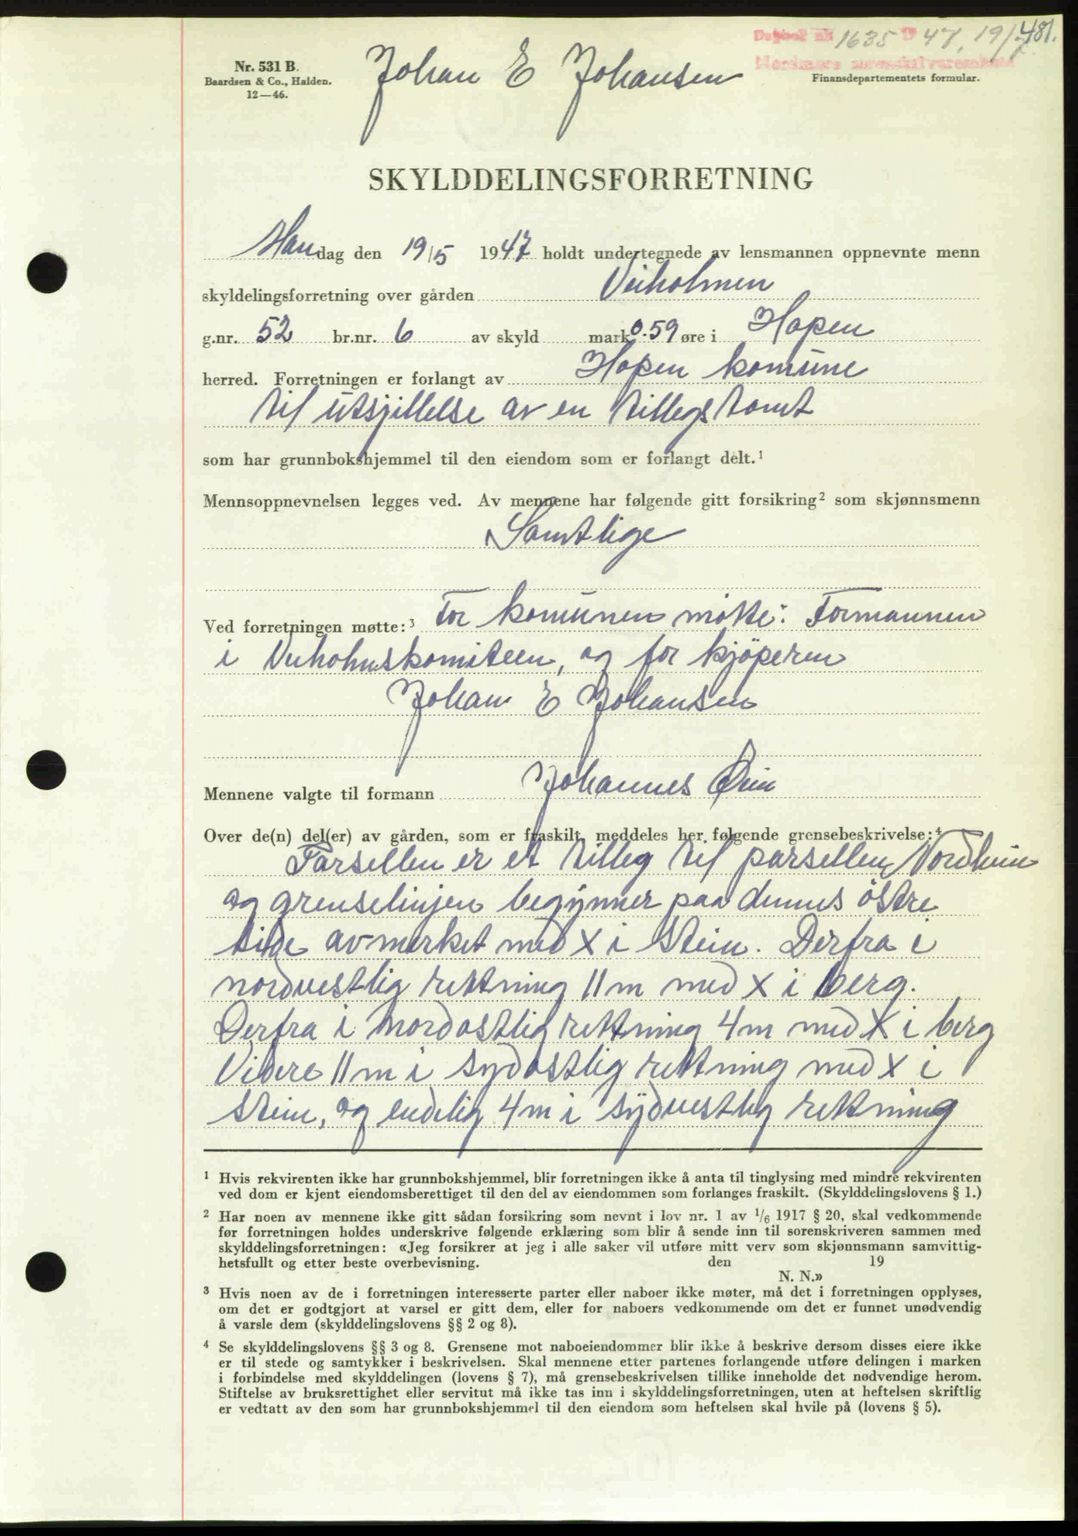 Dagbok nr. 1635 19 47, 19/7 481.
Nordmøre sorenskriverembete
Nr. 531 B.
Baardsen & Co., Halden.
12—46.
Johan E Johansen
Finansdepartementets formular.
SKYLDDELINGSFORRETNING
Mandag den 19/5 1947 holdt undertegnede av lensmannen oppnevnte menn
skyldelingsforretning over gården Veiholmen
g.nr. 52 br.nr. 6 av skyld mark 0.59 øre i Hopen
herred. Forretningen er forlangt av Hopen komune
til utsjillelse av en tillegstomt
som har grunnbokshjemmel til den eiendom som er forlangt delt.¹
Mennsoppnevnelsen legges ved. Av mennene har følgende gitt forsikring² som skjønnsmenn
Samtlige
Ved forretningen møtte:³ For komunen møtte: Formannen
i Veiholmskomiteen, og for kjöperen
Johan E Johansen
Mennene valgte til formann Johannes Öien
Over de(n) del(er) av gården, som er fraskilt, meddeles her følgende grensebeskrivelse:⁴
Parsellen er et tilleg til parsellen Nordheim
og grenselinjen begynner paa dennes östre
side avmerket med X i Stein. Derfra i
nordvestlig rettning 11 m med X i berg.
Derfra i nordostlig rettning 4 m med X i berg
Videre 11 m i sydostlig rettning med X i
stein, og endelig 4 m i sydvestlig rettning
¹ Hvis rekvirenten ikke har grunnbokshjemmel, blir forretningen ikke å anta til tinglysing med mindre rekvirenten
ved dom er kjent eiendomsberettiget til den del av eiendommen som forlanges fraskilt. (Skylddelingslovens § 1.)
² Har noen av mennene ikke gitt sådan forsikring som nevnt i lov nr. 1 av 1/6 1917 § 20, skal vedkommende
før forretningen holdes underskrive følgende erklæring som blir å sende inn til sorenskriveren sammen med
skylddelingsforretningen: «Jeg forsikrer at jeg i alle saker vil utføre mitt verv som skjønnsmann samvittig-
hetsfullt og etter beste overbevisning. den 19
N. N.»
³ Hvis noen av de i forretningen interesserte parter eller naboer ikke møter, må det i forretningen opplyses,
om det er godtgjort at varsel er gitt dem, eller for naboers vedkommende om det er funnet unødvendig
å varsle dem (skylddelingslovens §§ 2 og 8).
⁴ Se skylddelingslovens §§ 3 og 8. Grensene mot naboeiendommer blir ikke å beskrive dersom disses eiere ikke
er til stede og samtykker i beskrivelsen. Skal mennene etter partenes forlangende utføre delingen i marken
i forbindelse med skylddelingen (lovens § 7), må grensebeskrivelsen tillike inneholde det nødvendige herom.
Stiftelse av bruksrettighet eller servitut må ikke tas inn i skylddelingsforretningen, uten at heftelsen skriftlig
er vedtatt av den som har grunnbokshjemmel til den eiendom som heftelsen skal hvile på (lovens § 5).